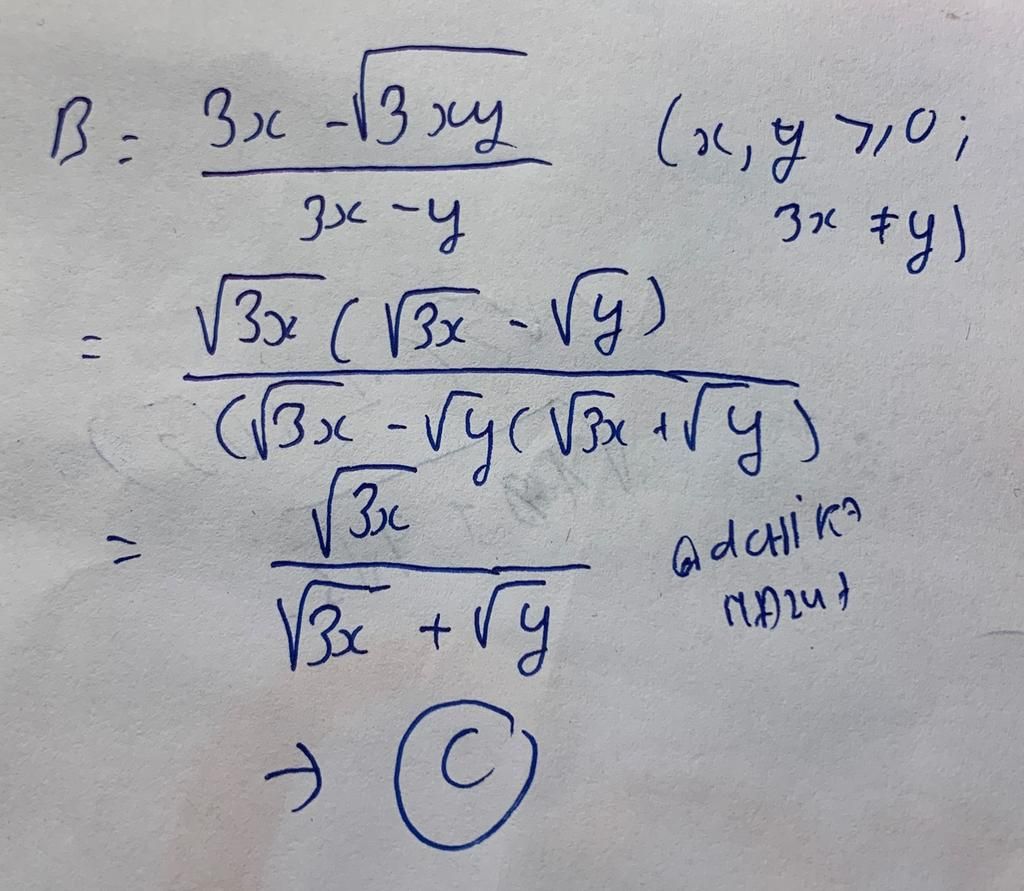 B = (3x - √(3xy)) / (3x - y) (x, y ≥ 0;
3x ≠ y)
= √(3x) (√(3x) - √y) / (√(3x) - √y (√(3x) + √y)
= √(3x) / (√(3x) + √y)
→ C